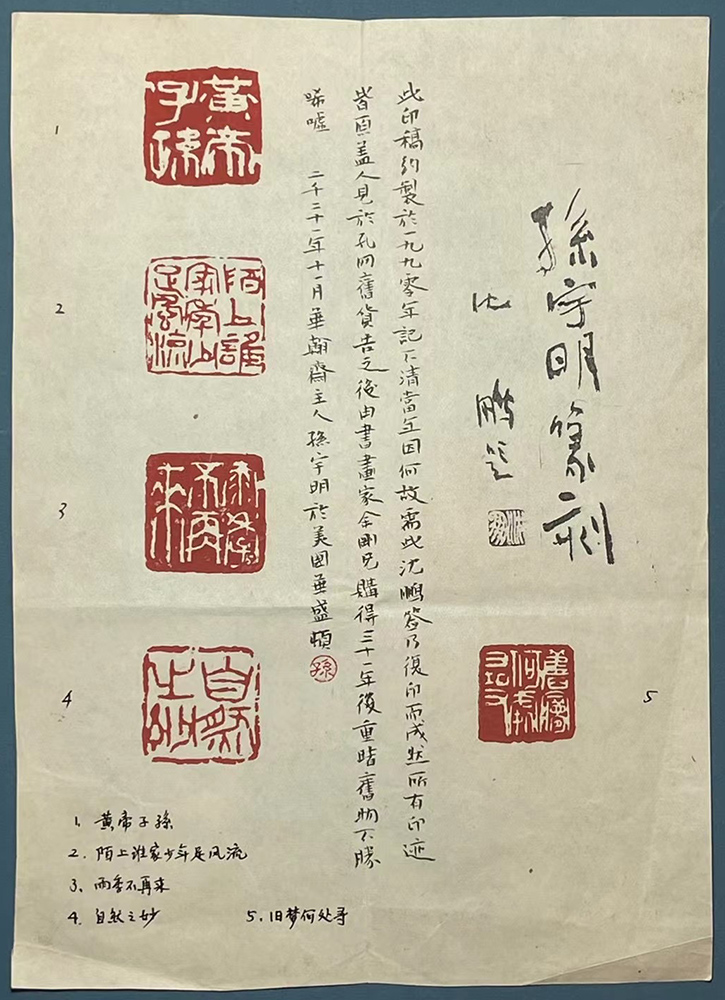 孫宇明篆刻
沈鹏题
此印稿約製於一九九零年記不清當年因何故需此沈鵬簽乃復印而成然所有印迹
皆原盖人見於孔网舊貨告之後由書畫家金剛兄購得三十一年後重睹舊物不勝
唏噓 二千二十一年十一月華翰齋主人孫宇明於美國華盛頓
孫
1
黃帝子孫
2
陌上誰家少年足風流
3
雨季不再來
4
自然之妙
5
舊夢何處尋
1、黄帝子孫
2、陌上谁家少年足风流
3、雨季不再来
4、自然之妙
5、旧梦何处寻